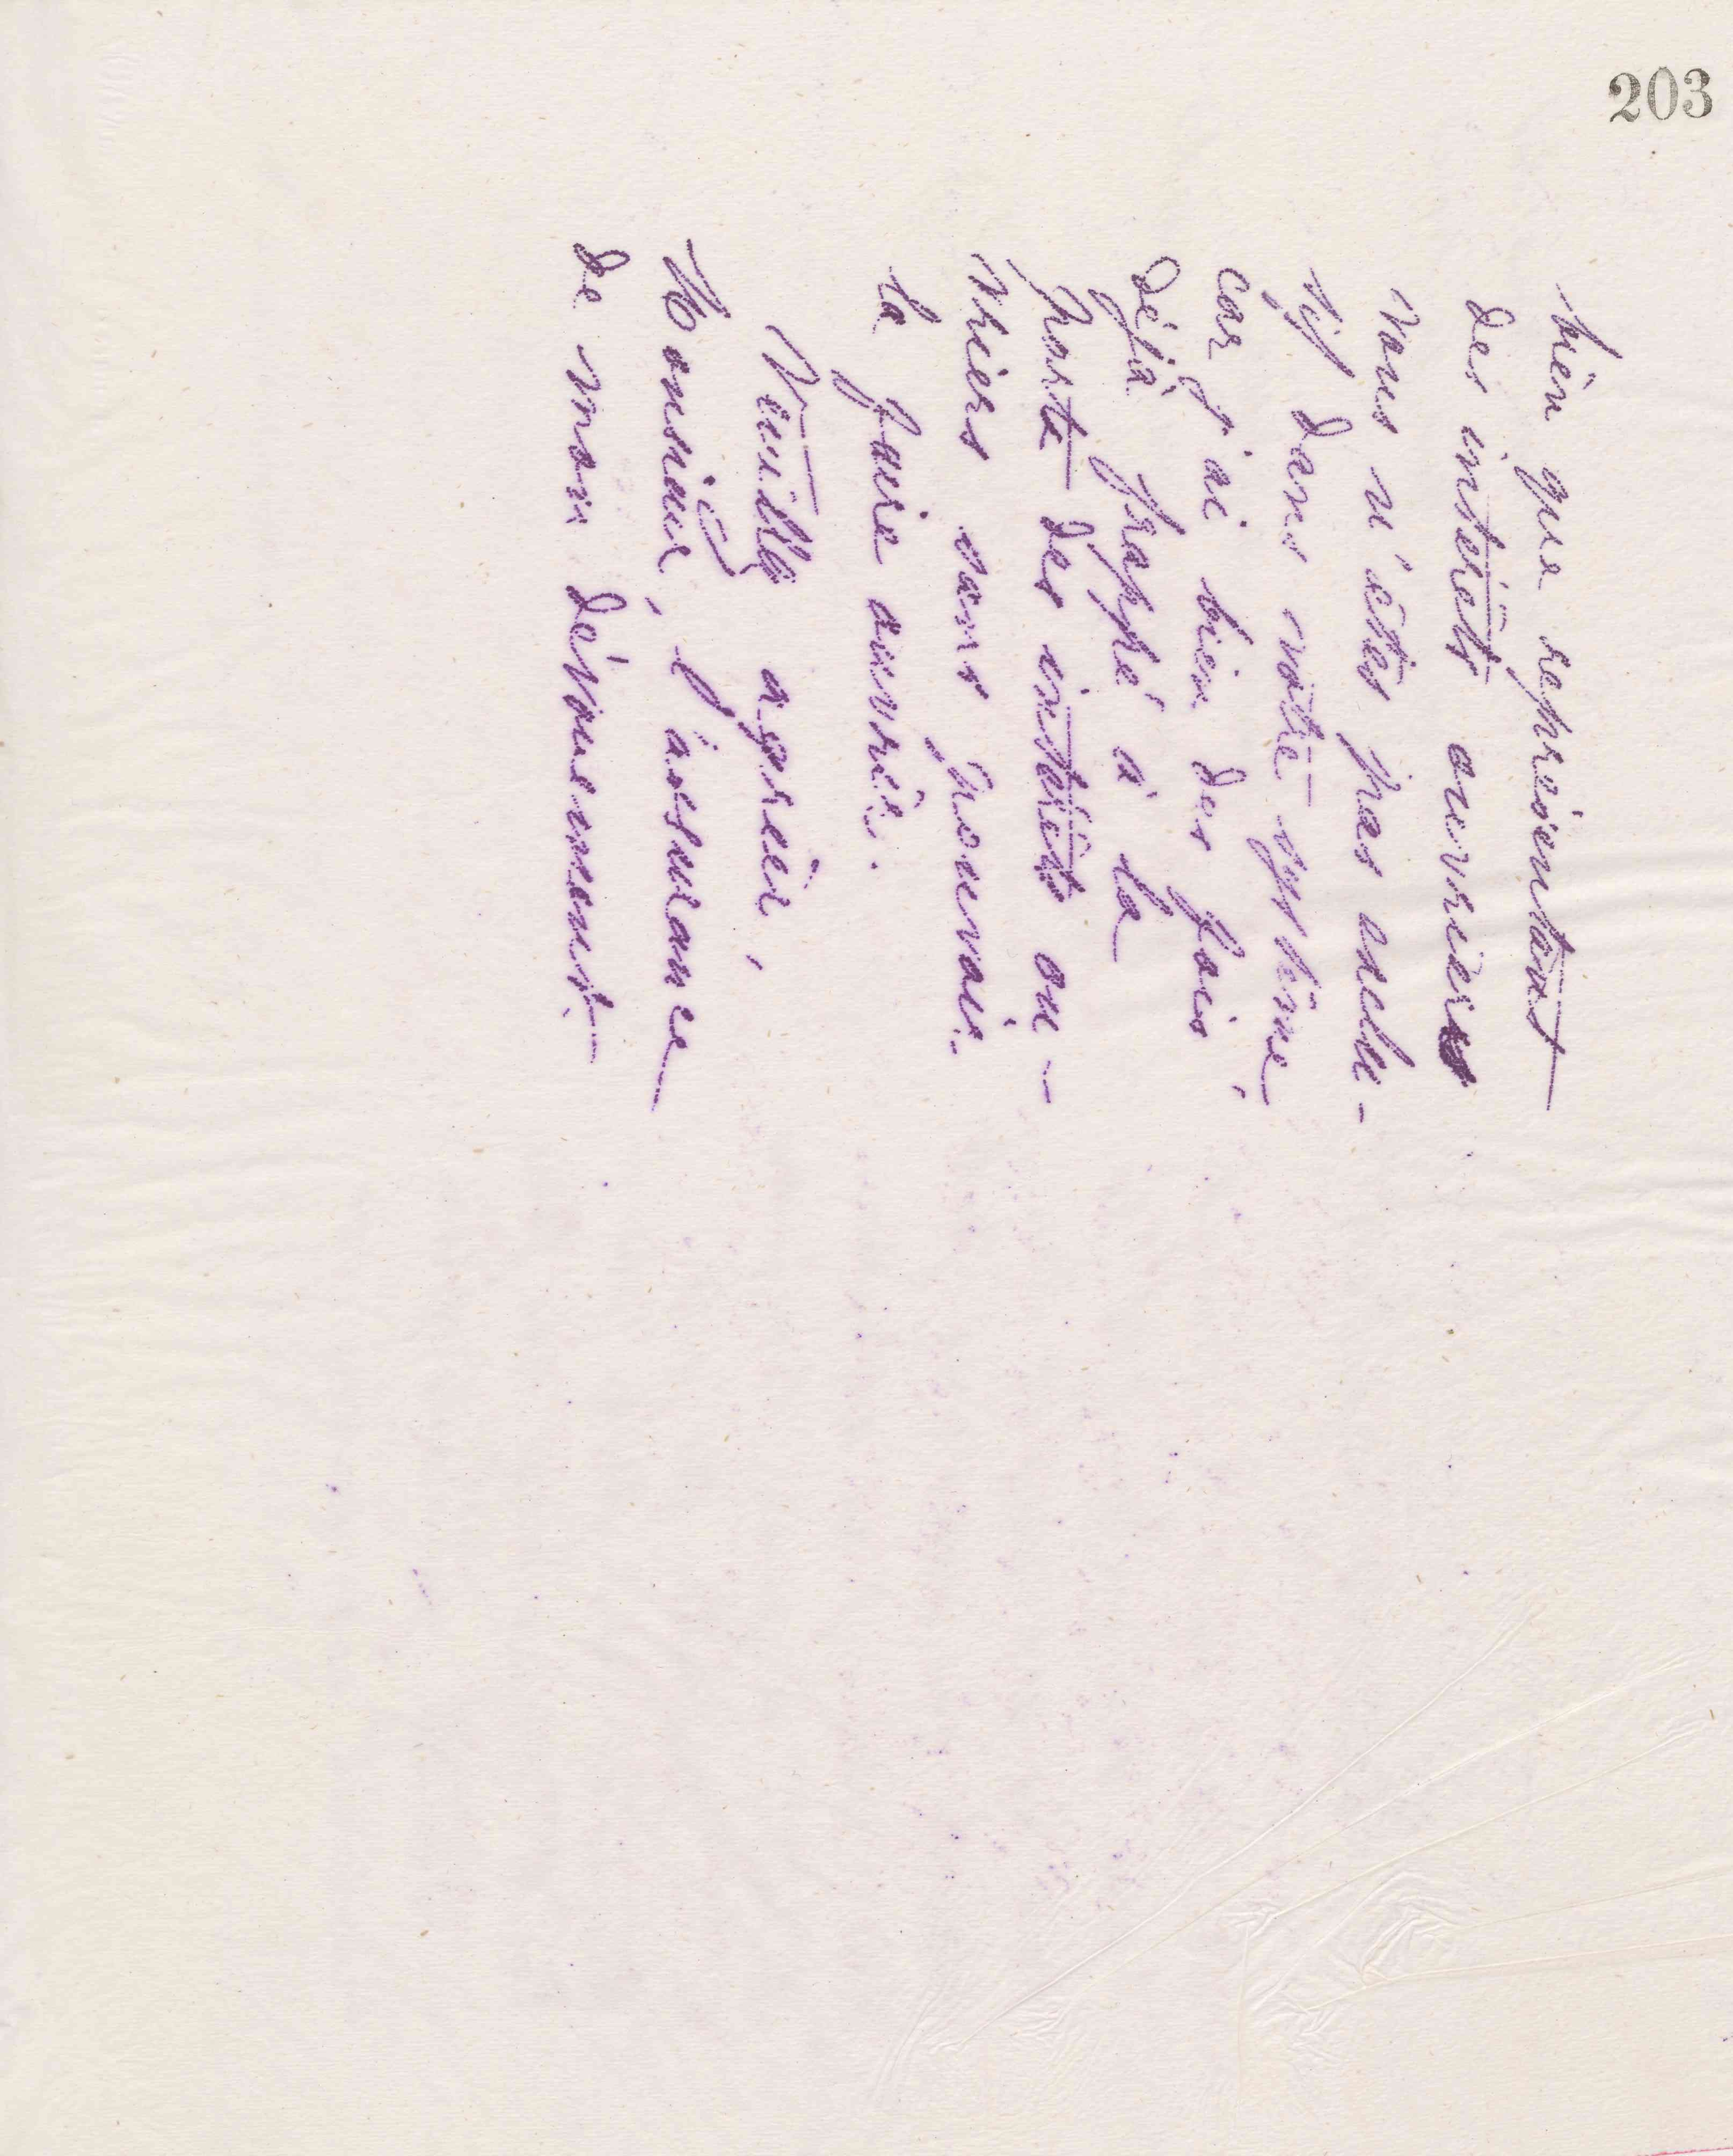 203
bien que représentant
des intérêts ouvriers
vous n'êtes pas exclu-
sif dans votre système
car j'ai bien des fois,
déjà frappé à la
porte des intérêts ou-
vriers sans pouvoir
la faire ouvrir.
Veuillez agréer,
Monsieur, l'assurance
de mon dévouement.